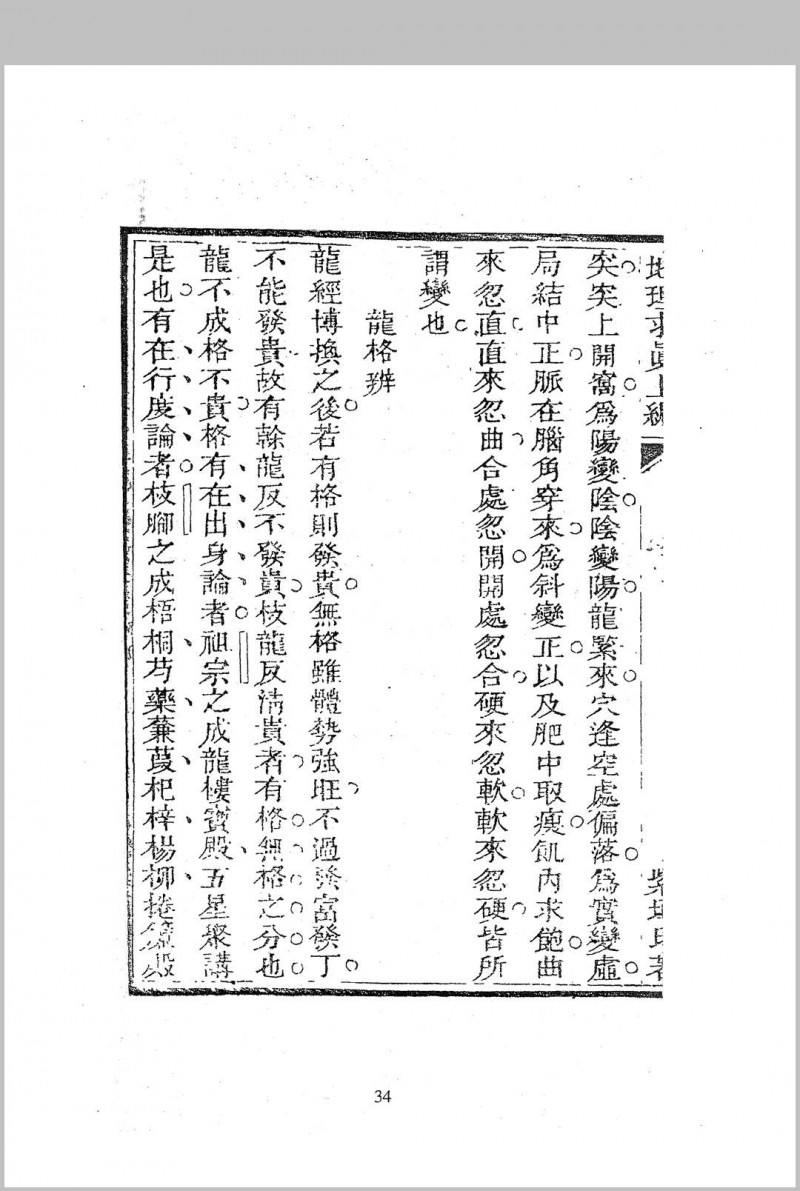 地理求眞上編
突突上開窩爲陽變陰陰變陽龍累來穴逢空處偏落爲實變虛
局結中正脈在腦角穿來爲斜變正以及肥中取瘦飢內求飽曲
來忽直直來忽曲合處忽開開處忽合硬來忽軟軟來忽硬皆所
謂變也
龍格辨
龍經博換之後若有格則發貴無格雖體勢強旺不過發富發丁
不能發貴故有榦龍反不發貴枝龍反淸貴者有格無格之分也
龍不成格不貴格有在出身論者祖宗之成龍樓寶殿五星聚講
是也有在行度論者枝腳之成梧桐芍藥蒹葭杞梓楊柳捲
34